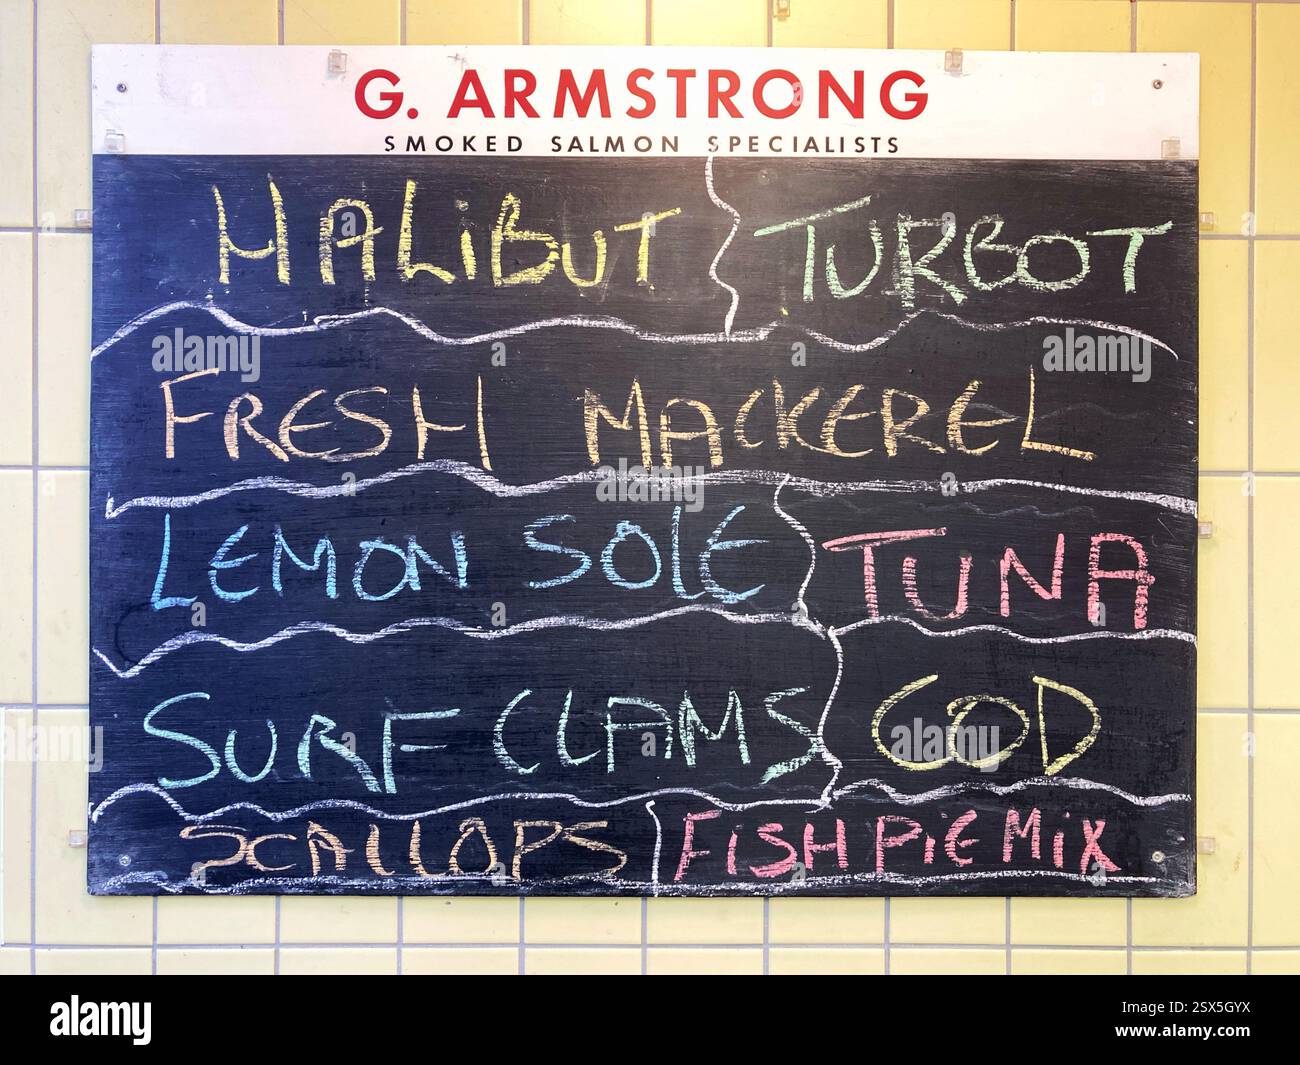 G. ARMSTRONG
SMOKED SALMON SPECIALISTS
HALiBUT TURBOT
FRESH MACKEREL
LEMON SOLE TUNA
SURF CLAMS COD
SCALLOPS FiSH PiE MiX
alamy
Image ID: 2SX5GYX
www.alamy.com